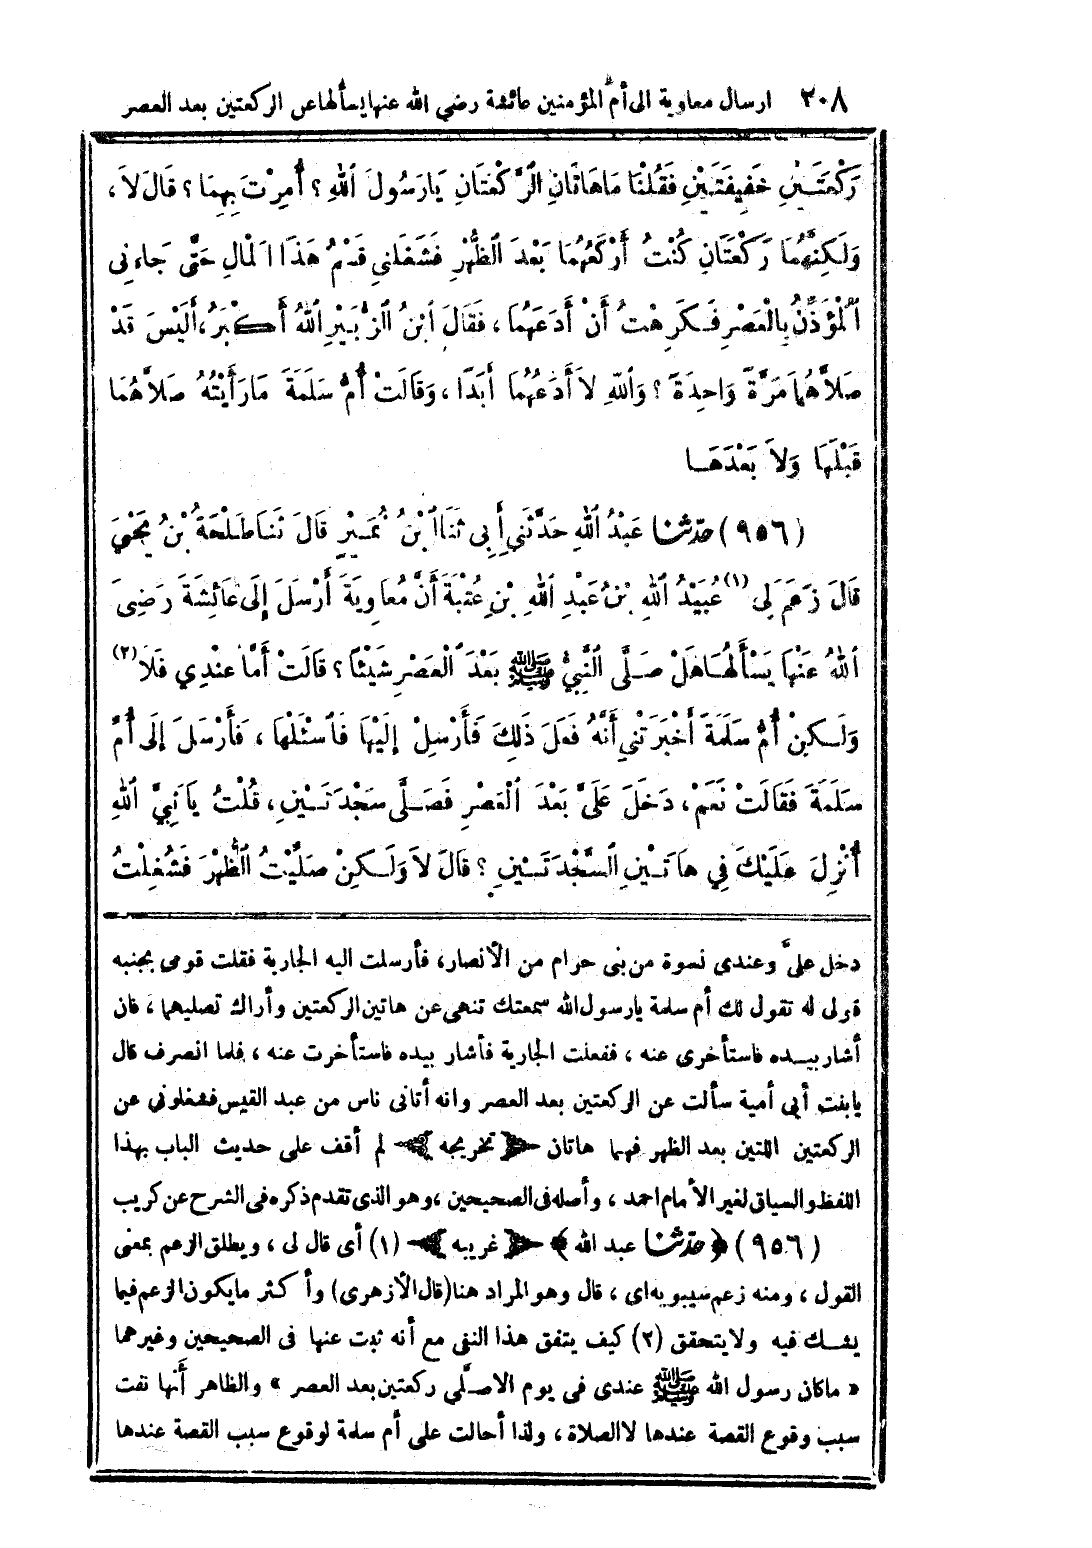 ٢٠٨ ارسال معاوية الى أم المؤمنين عائشة رضي الله عنها يسألها عن الركعتين بعد العصر
رَكْعَتَيْنِ خَفِيفَتَيْنِ فَقُلْنَا مَا هَاتَانِ الرَّكْعَتَانِ يَا رَسُولَ اللهِ؟ أُمِرْتَ بِهِمَا؟ قَالَ لاَ،
وَلَكِنَّهُمَا رَكْعَتَانِ كُنْتُ أَرْكَعُهُمَا بَعْدَ الظُّهْرِ فَشَغَلَنِي قَسْمُ هَذَا الْمَالِ حَتَّى جَاءَنِي
الْمُؤَذِّنُ بِالْعَصْرِ فَكَرِهْتُ أَنْ أَدَعَهُمَا، فَقَالَ ابْنُ الزُّبَيْرِ اللهُ أَكْبَرُ، أَلَيْسَ قَدْ
صَلاَّهُمَا مَرَّةً وَاحِدَةً؟ وَاللهِ لاَ أَدَعُهُمَا أَبَدًا، وَقَالَتْ أُمُّ سَلَمَةَ مَا رَأَيْتُهُ صَلاَّهُمَا
قَبْلَهَا وَلاَ بَعْدَهَا
(٩٥٦) حدّثنا عَبْدُ اللهِ حَدَّثَنِي أَبِي ثَنَا ابْنُ نُمَيْرٍ قَالَ ثَنَا طَلْحَةُ بْنُ يَحْيَى
قَالَ زَعَمَ لِي (١) عُبَيْدُ اللهِ بْنُ عَبْدِ اللهِ بْنِ عُتْبَةَ أَنَّ مُعَاوِيَةَ أَرْسَلَ إِلَى عَائِشَةَ رَضِيَ
اللهُ عَنْهَا يَسْأَلُهَا هَلْ صَلَّى النَّبِيُّ ﷺ بَعْدَ الْعَصْرِ شَيْئًا؟ قَالَتْ أَمَّا عِنْدِي فَلاَ (٢)
وَلَكِنْ أُمُّ سَلَمَةَ أَخْبَرَتْنِي أَنَّهُ فَعَلَ ذَلِكَ فَأَرْسِلْ إِلَيْهَا فَاسْئَلْهَا، فَأَرْسَلَ إِلَى أُمِّ
سَلَمَةَ فَقَالَتْ نَعَمْ، دَخَلَ عَلَيَّ بَعْدَ الْعَصْرِ فَصَلَّى سَجْدَتَيْنِ، قُلْتُ يَا نَبِيَّ اللهِ
أُنْزِلَ عَلَيْكَ فِي هَاتَيْنِ السَّجْدَتَيْنِ؟ قَالَ لاَ وَلَكِنْ صَلَّيْتُ الظُّهْرَ فَشُغِلْتُ
دخل علىَّ وعندى نسوة من بنى حرام من الأنصار، فأرسلت اليه الجارية فقلت قومى بجنبه
قولى له تقول لك أم سلمة يارسول الله سمعتك تنهى عن هاتين الركعتين وأراك تصليهما، فان
أشار بيده فاستأخرى عنه، ففعلت الجارية فأشار بيده فاستأخرت عنه، فلما انصرف قال
يابنت أبى أمية سألت عن الركعتين بعد العصر وانه أتانى ناس من عبد القيس فشغلونى عن
الركعتين اللتين بعد الظهر فهما هاتان ﴿تخريجه﴾ لم أقف على حديث الباب بهذا
اللفظ والسياق لغير الأمام احمد، وأصله فى الصحيحين، وهو الذى تقدم ذكره فى الشرح عن كريب
(٩٥٦) ﴿حدّثنا عبد الله﴾ ﴿غريبه﴾ (١) أى قال لى، ويطلق الزعم بمعنى
القول، ومنه زعم سيبويه اى، قال وهو المراد هنا (قال الأزهرى) وأكثر مايكون الزعم فيما
يشك فيه ولايتحقق (٢) كيف يتفق هذا النفى مع أنه ثبت عنها فى الصحيحين وغيرهما
« ماكان رسول الله ﷺ عندى فى يوم الاصلَّى ركعتين بعد العصر » والظاهر أنَّها نفت
سبب وقوع القصة عندها لا الصلاة، ولذا أحالت على أم سلمة لوقوع سبب القصة عندها